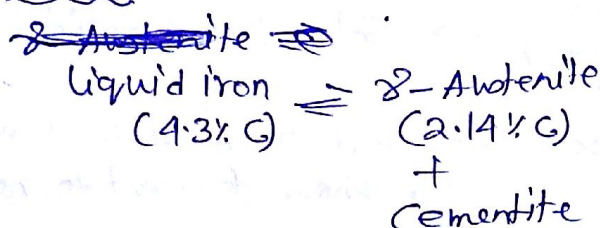 γ-Austenite ⇌
liquid iron ⇌ γ-Austenite
(4.3% C) (2.14% C)
+
Cementite